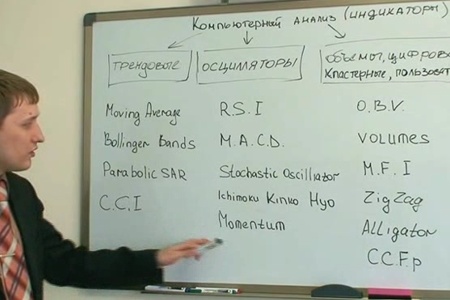 Компьютерный анализ (индикаторы)
трендовые
осцилляторы
Объемы, цифров
Кластерные, пользоват
Moving Average
Bollinger Bands
Parabolic SAR
C.C.I
R.S.I
M.A.C.D.
Stochastic Oscilliator
Ichimoku Kinko Hyo
Momentum
O.B.V.
Volumes
M.F.I
ZigZag
Alligator
C.C.F.p